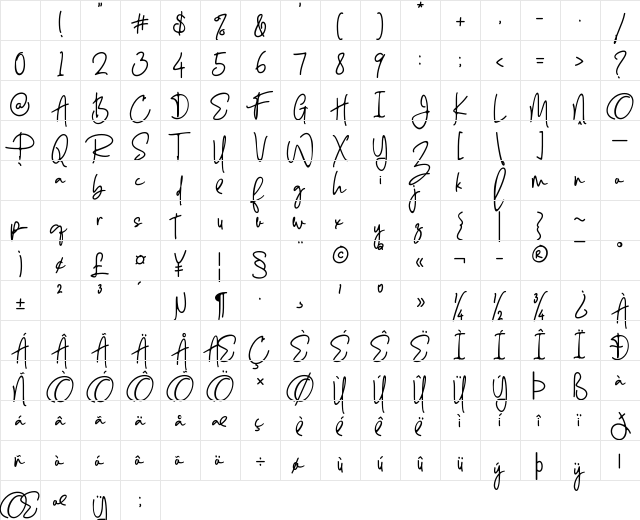 ! " # $ % & ' ( ) * + , - . /
0 1 2 3 4 5 6 7 8 9 : ; < = > ?
@ A B C D E F G H I J K L M N O
P Q R S T U V W X Y Z [ \ ] —
a b c d e f g h i j k l m n o
p q r s t u v w x y z { | } ~
¡ ¢ £ ¤ ¥ ¦ § ¨ © ª « ¬ - ® ¯ °
± ² ³ ´ µ ¶ · ¸ ¹ º » ¼ ½ ¾ ¿ À
Á Â Ã Ä Å Æ Ç È É Ê Ë Ì Í Î Ï Ð
Ñ Ò Ó Ô Õ Ö × Ø Ù Ú Û Ü Ý Þ ß à
á â ã ä å æ ç è é ê ë ì í î ï ð
ñ ò ó ô õ ö ÷ ø ù ú û ü ý þ ÿ ı
Œ œ Ÿ ;